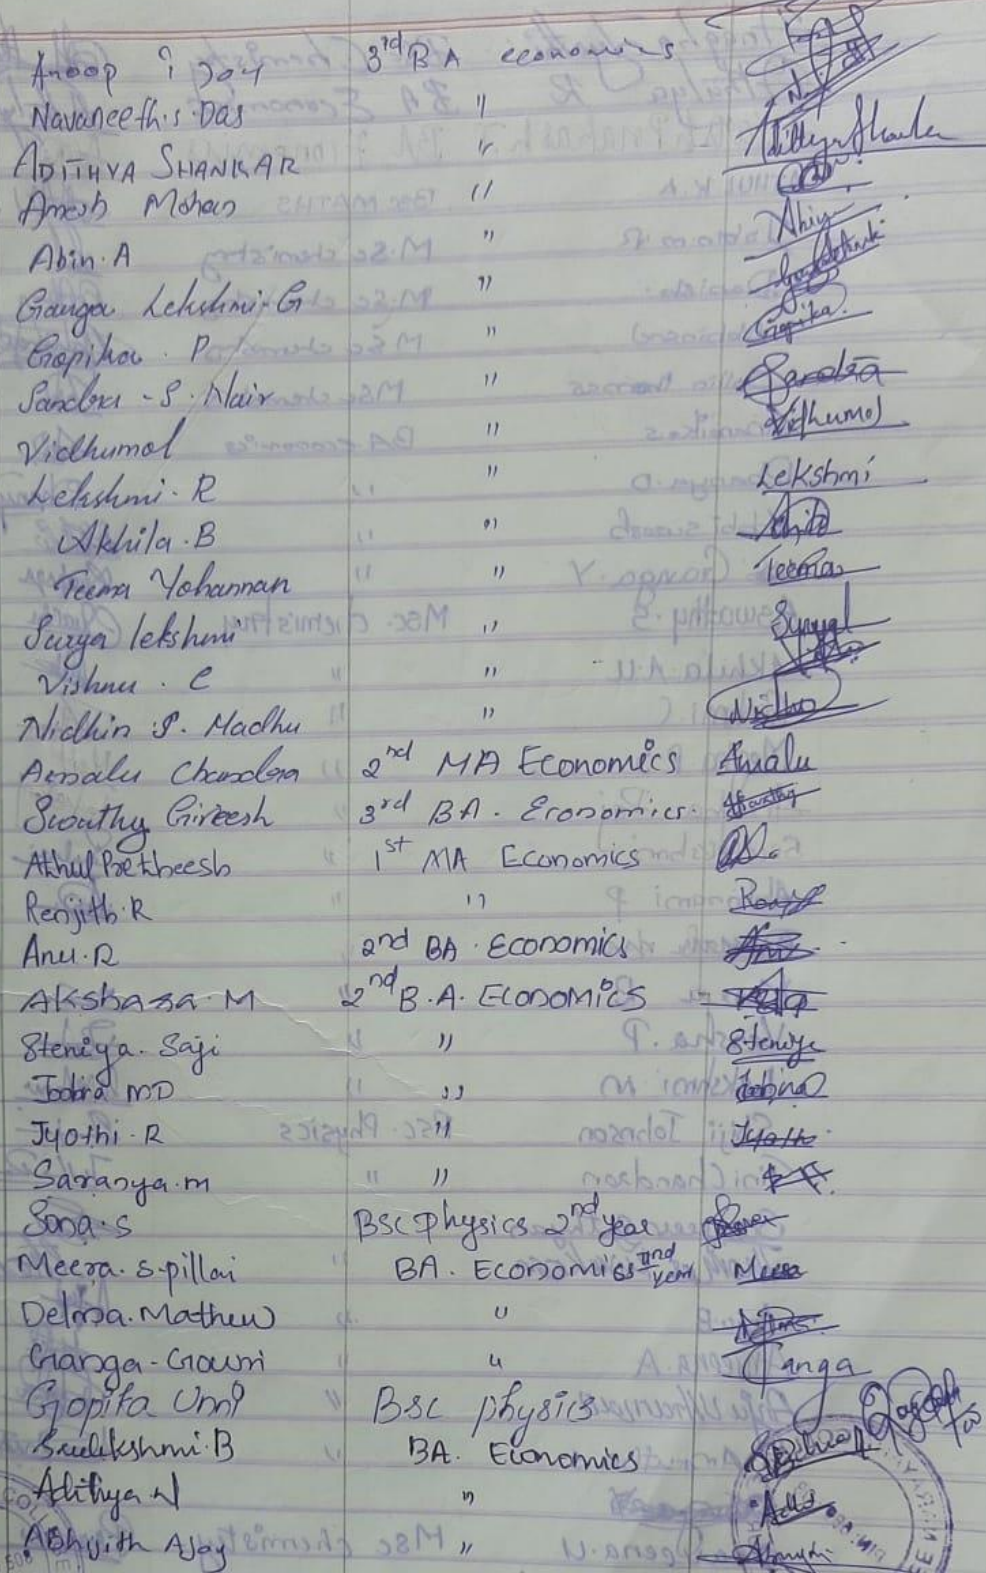 Anoop i Joy 3rd BA economics
Navaneeth.s.Das "
ADITHYA SHANKAR " Adithya Shankar
Amesh Mohan "
Abin.A "
Ganga Lekshmi-G "
Gopika . P " Gopika
Sandra - S. Nair " Sandra
Vidhumol " Vidhumol
Lekshmi. R " Lekshmi
Akhila.B " Akhila
Teema Yohannan " Teema
Surya lekshmi "
Vishnu . C "
Nidhin S. Madhu " Nidhin
Amalu Chandra 2nd MA Economics Amalu
Swathy Gireesh 3rd BA. Economics. Swathy
Athul 1st MA Economics
Renjith.R "
Anu.R 2nd BA. Economics Anu
AKshara.M 2nd B.A. Economics
Steniya. Saji " Steniya
Jobina MD " Jobina
Jyothi.R " Jyothi
Saranya.m "
Sona.s BSC physics 2nd year
Meera. s.pillai BA. Economics 2nd year Meera
Delma.Mathew "
Ganga-Gowri " Ganga
Gopika Unni BSC physics
Sreelekshmi.B BA. Economics
Adithya N "
Abhijith Ajay "